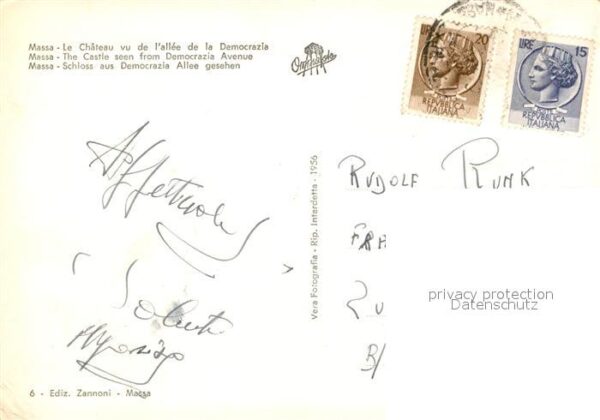 Massa - Le Château vu de l'allée de la Democrazia
Massa - The Castle seen from Democrazia Avenue
Massa - Schloss aus Democrazia Allee gesehen
20
LIRE
15
POSTE
REPVBBLICA
ITALIANA
POSTE
REPVBBLICA
ITALIANA
Vera Fotografia - Rip. Interdetta - 1956
RUDOLF RUNK
FRA
ZU
B/
privacy protection
Datenschutz
6 - Ediz. Zannoni - Massa